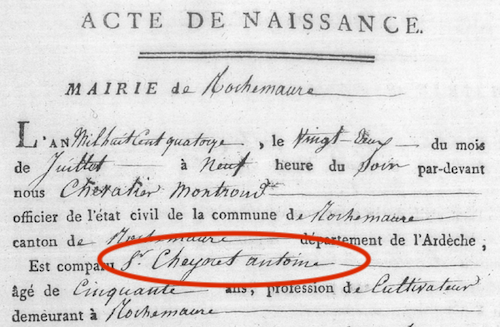 ACTE DE NAISSANCE.
MAIRIE de Rochemaure
L'AN Mil huit Cent quatorze, le Vingt-Deux du mois
de Juillet à Neuf heure du Soir par-devant
nous Chevalier Montroud
officier de l'état civil de la commune de Rochemaure
canton de Rochemaure département de l'Ardèche,
Est comparu Sr. Cheynet antoine
âgé de Cinquante ans, profession de Cultivateur
demeurant à Rochemaure